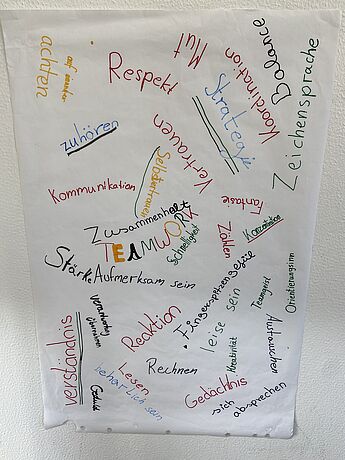 auf einander
achten
Respekt
Mut
Strategie
Koordination
Balance
Zeichensprache
zuhören
Vertrauen
Selbstvertrauen
Kommunikation
Zusammenhalt
TEAMWORK
Schnelligkeit
Fantasie
Zählen
Konzentration
Stärke
Aufmerksam sein
Fingerspitzengefühl
Orientierungssinn
Teamgeist
leise sein
Verantwortung
übernehmen
Reaktion
Austauschen
Kreativität
verständnis
Rechnen
Lesen
beharrlich sein
Geduld
Gedächtnis
sich
absprechen